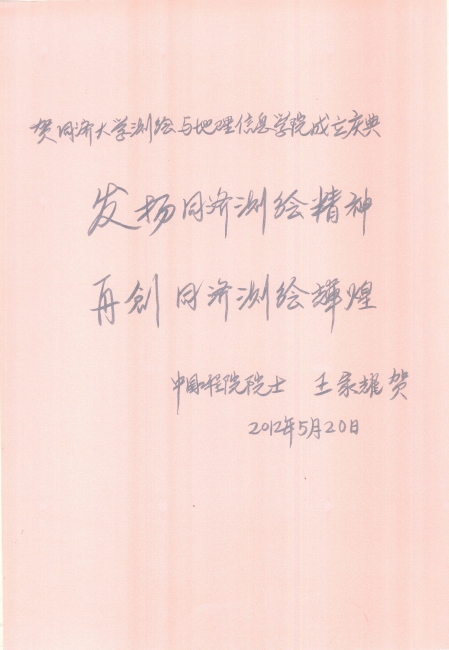 贺同济大学测绘与地理信息学院成立庆典
发扬同济测绘精神
再创同济测绘辉煌
中国工程院院士 王家耀 贺
2012年5月20日